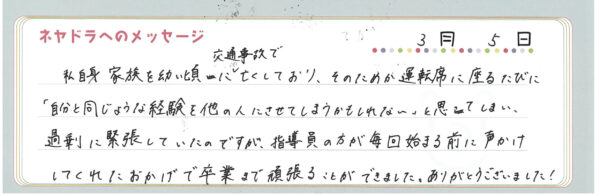 ネヤドラへのメッセージ
3月 5日
交通事故で
私自身 家族を幼い頃に亡くしており、そのためか運転席に座るたびに
「自分と同じような経験を他の人にさせてしまうかもしれない」と思ってしまい、
過剰に緊張していたのですが、指導員の方が毎回始まる前に声かけ
してくれたおかげで卒業まで頑張ることができました。ありがとうございました!